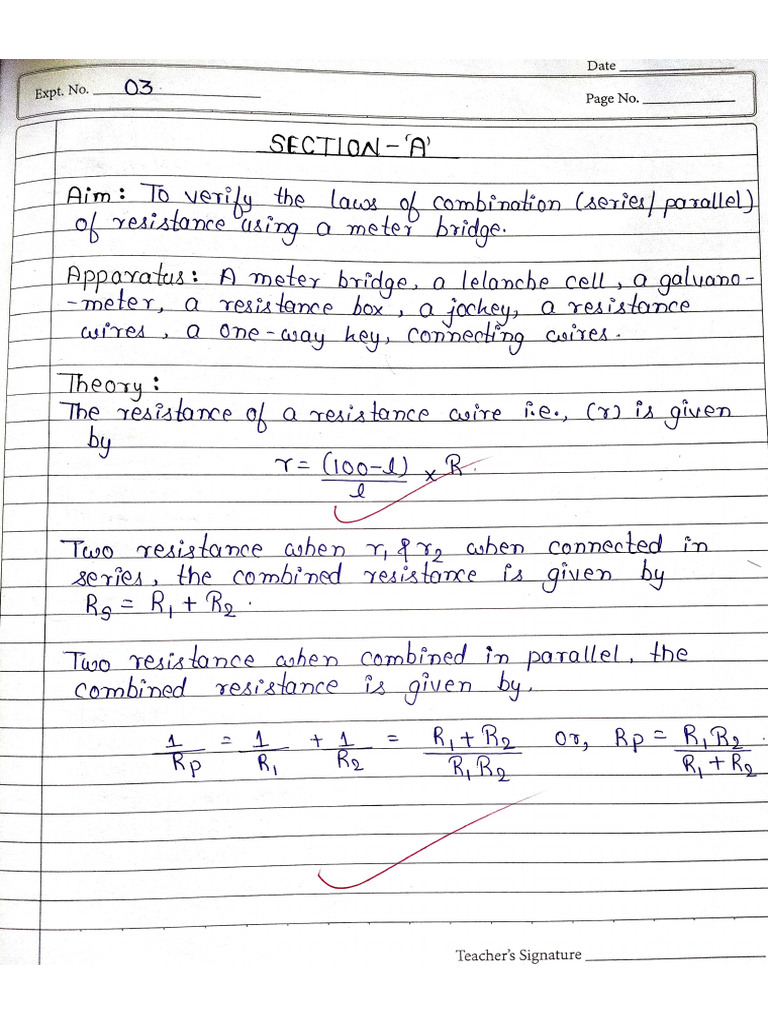 Date
Expt. No. 03
Page No.
SECTION-'A'
Aim: To verify the laws of combination (series/parallel)
of resistance using a meter bridge.
Apparatus: A meter bridge, a lelanche cell, a galvano-
-meter, a resistance box, a jockey, a resistance
wires, a one-way key, connecting wires.
Theory:
The resistance of a resistance wire i.e., (r) is given
by
r = (100-l)/l × R.
Two resistance when r₁ & r₂ when connected in
series, the combined resistance is given by
Rs = R₁ + R₂.
Two resistance when combined in parallel, the
combined resistance is given by.
1/Rp = 1/R₁ + 1/R₂ = R₁+R₂/R₁R₂ or, Rp = R₁R₂/R₁+R₂.
Teacher's Signature